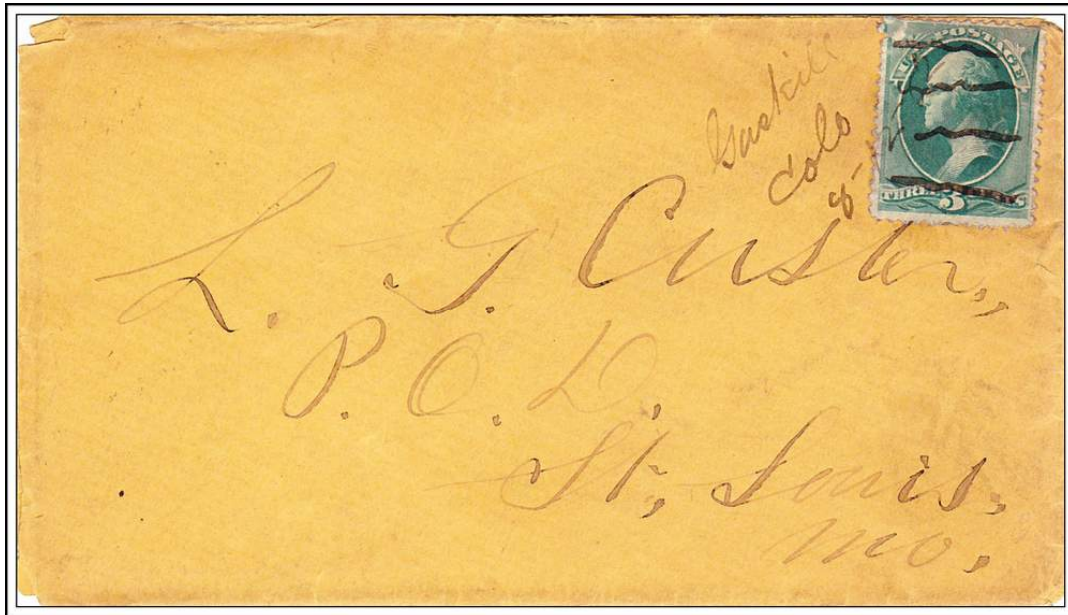 Gaskill
Colo
8-
U.S. POSTAGE
THREE CENTS
3
L. G. Custer,
P. O. D.
St, Louis.
Mo.